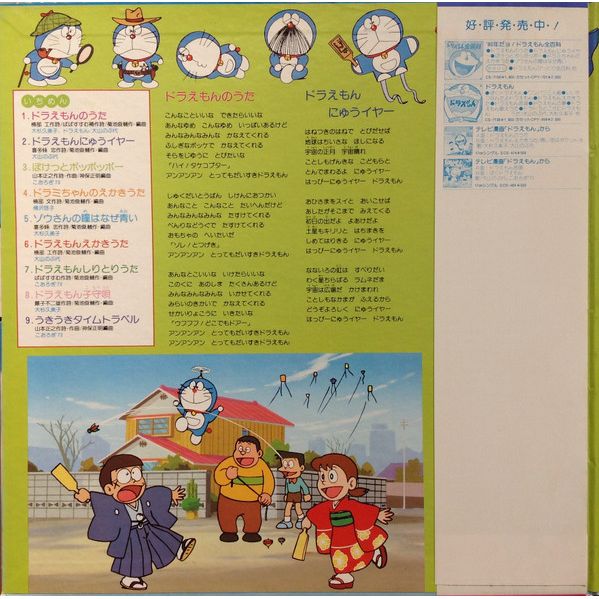 いちめん
1.ドラえもんのうた
楠部 工作詩/ばばすすむ補作詩/菊池俊輔作・編曲
大杉久美子、ドラえもん 大山のぶ代
2.ドラえもんにゅうイヤー
喜多條 忠作詩/菊池俊輔作・編曲
大山のぶ代
3.ぽけっとポッポッポー
山本正之作詩・作曲/神保正明編曲
こおろぎ'73
4.ドラミちゃんのえかきうた
楠部 文作詩/菊池俊輔作・編曲
横沢啓子
5.ゾウさんの瞳はなぜ青い
喜多條 忠作詩/菊池俊輔作・編曲
大杉久美子
6.ドラえもんえかきうた
楠部 工作詩/菊池俊輔作・編曲
大山のぶ代
7.ドラえもんしりとりうた
ばばすすむ作詩/菊池俊輔作・編曲
こおろぎ'73
8.ドラえもん子守唄
藤子不二雄作詩/菊池俊輔作・編曲
大杉久美子
9.うきうきタイムトラベル
山本正之作詩・作曲/神保正明編曲
こおろぎ'73
ドラえもんのうた
こんなこといいな できたらいいな
あんなゆめ こんなゆめ いっぱいあるけど
みんなみんなみんな かなえてくれる
ふしぎなポッケで かなえてくれる
そらをじゆうに とびたいな
「ハイ!タケコプター」
アンアンアン とってもだいすきドラえもん
しゅくだいとうばん しけんにおつかい
あんなこと こんなこと たいへんだけど
みんなみんなみんな たすけてくれる
べんりなどうぐで たすけてくれる
おもちゃの へいたいだ
「ソレ!とつげき」
アンアンアン とってもだいすきドラえもん
あんなとこいいな いけたらいいな
このくに あのしま たくさんあるけど
みんなみんなみんな いかせてくれる
みらいのきかいで かなえてくれる
せかいりょこうに いきたいな
「ウフフフ!どこでもドアー」
アンアンアン とってもだいすきドラえもん
アンアンアン とってもだいすきドラえもん
ドラえもん
にゅうイヤー
はねつきのはねは とびだせば
地球はちいさな ほしになる
宇宙の正月 宇宙晴れ
ことしもげんきな こどもらと
とんでまわるよ にゅうイヤー
はっぴーにゅうイヤー ドラえもん
おひさまをスイと おいこせば
あしたがそこまで みえてくる
初日の出だよ よあけだよ
土星もキリリと はちまきを
しめてはりきる にゅうイヤー
はっぴーにゅうイヤー ドラえもん
なないろの虹は すべりだい
わく星ちらばる ラムネだま
宇宙は広場だ かけまわれ
ことしもなかまが ふえるから
どうぞよろしく にゅうイヤー
はっぴーにゅうイヤー ドラえもん
好・評・発・売・中・!
'80年だヨ!ドラえもん全百科
ドラえもん
テレビ漫画「ドラえもん」から
テレビ漫画「ドラえもん」から